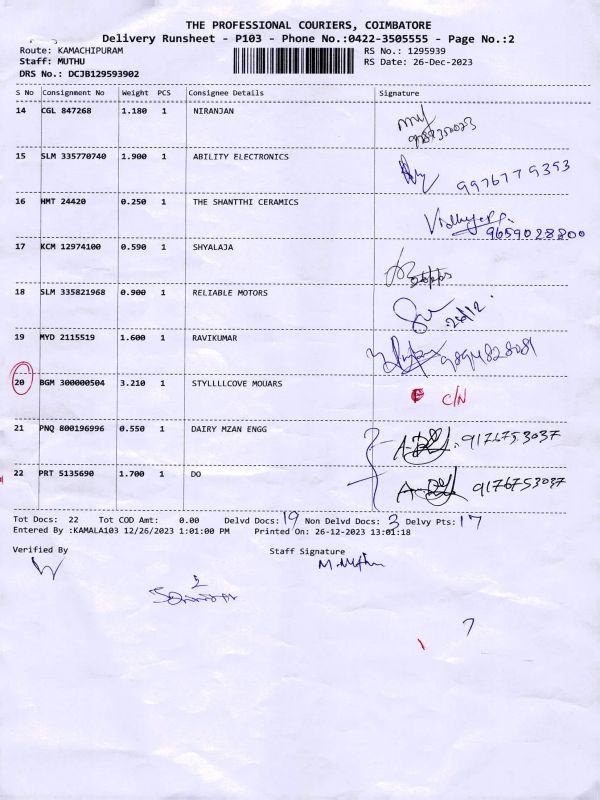 THE PROFESSIONAL COURIERS, COIMBATORE
Delivery Runsheet - P103 - Phone No.:0422-3505555 - Page No.:2
Route: KAMACHIPURAM RS No.: 1295939
Staff: MUTHU RS Date: 26-Dec-2023
DRS No.: DCJB129593902
S No Consignment No Weight PCS Consignee Details Signature
14 CGL 847268 1.180 1 NIRANJAN
15 SLM 335770740 1.900 1 ABILITY ELECTRONICS
9976779393
16 HMT 24420 0.250 1 THE SHANTTHI CERAMICS
9659028800
17 KCM 12974100 0.590 1 SHYALAJA
18 SLM 335821968 0.900 1 RELIABLE MOTORS
19 MYD 2115519 1.600 1 RAVIKUMAR
9894828081
20 BGM 300000504 3.210 1 STYLLLLCOVE MOUARS C/N
21 PNQ 800196996 0.550 1 DAIRY MZAN ENGG
22 PRT 5135690 1.700 1 DO 9176753037
Tot Docs: 22 Tot COD Amt: 0.00 Delvd Docs: 19 Non Delvd Docs: 3 Delvy Pts: 17
Entered By :KAMALA103 12/26/2023 1:01:00 PM Printed On: 26-12-2023 13:01:18
Verified By Staff Signature
M. Muthu